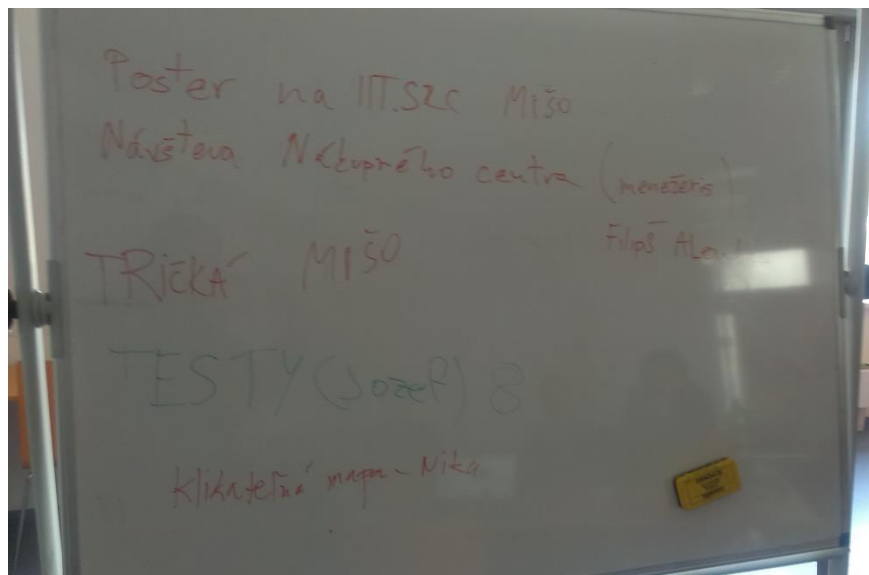 Poster na IIT.SZC MIŠO
Návšteva Nákupného centra (menežeris)
Filipš
TRičKÁ MIŠO
TESTY (Jozef) 8
Klikateľná mapa - Nika